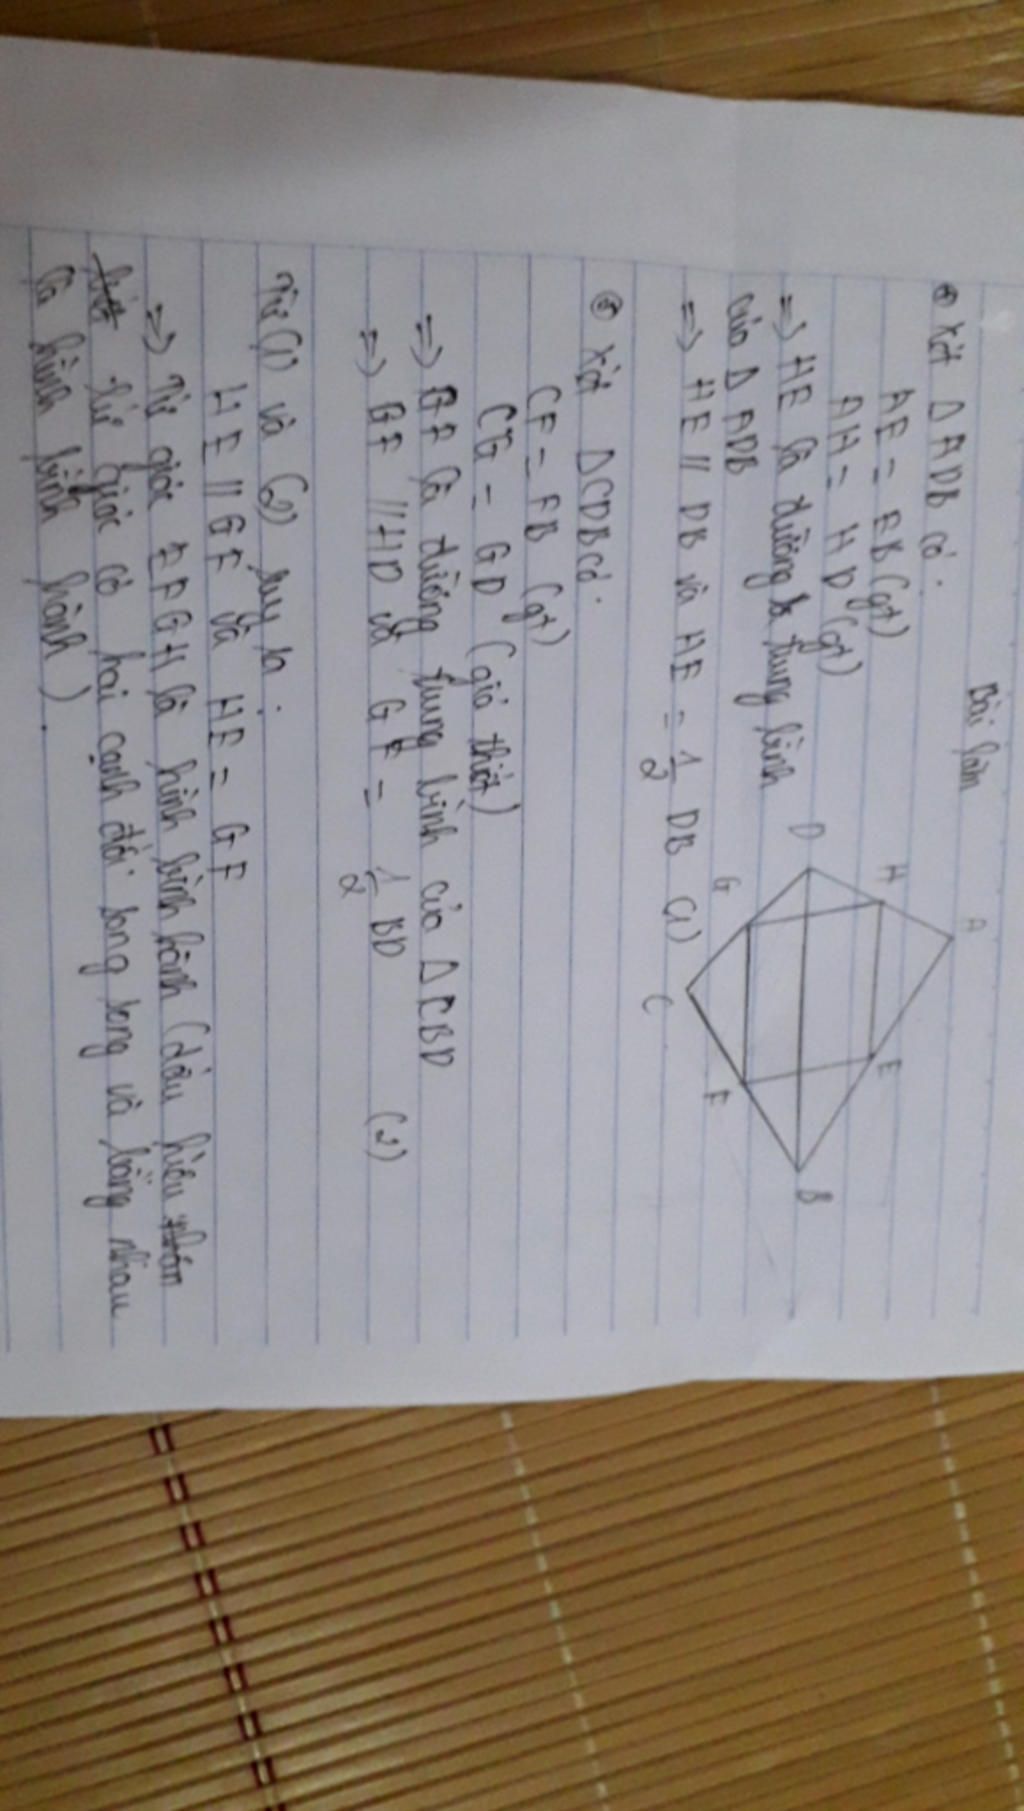 Bài làm
* Xét Δ ADB có:
AE = EB (gt)
AH = HD (gt)
=> HE là đường trung bình
của Δ ADB
=> HE // DB và HE = 1/2 DB (1)
* Xét ΔCDB có:
CF = FB (gt)
CG = GD (giả thiết)
=> GF là đường trung bình của Δ CBD
=> GF // HD và GF = 1/2 BD (2)
Từ (1) và (2) suy ra:
HE // GF và HE = GF
=> Tứ giác EFGH là hình bình hành (dấu hiệu
tứ giác có hai cạnh đối song song và bằng nhau
là hình bình hành).
A
H
D
E
G
B
C
F